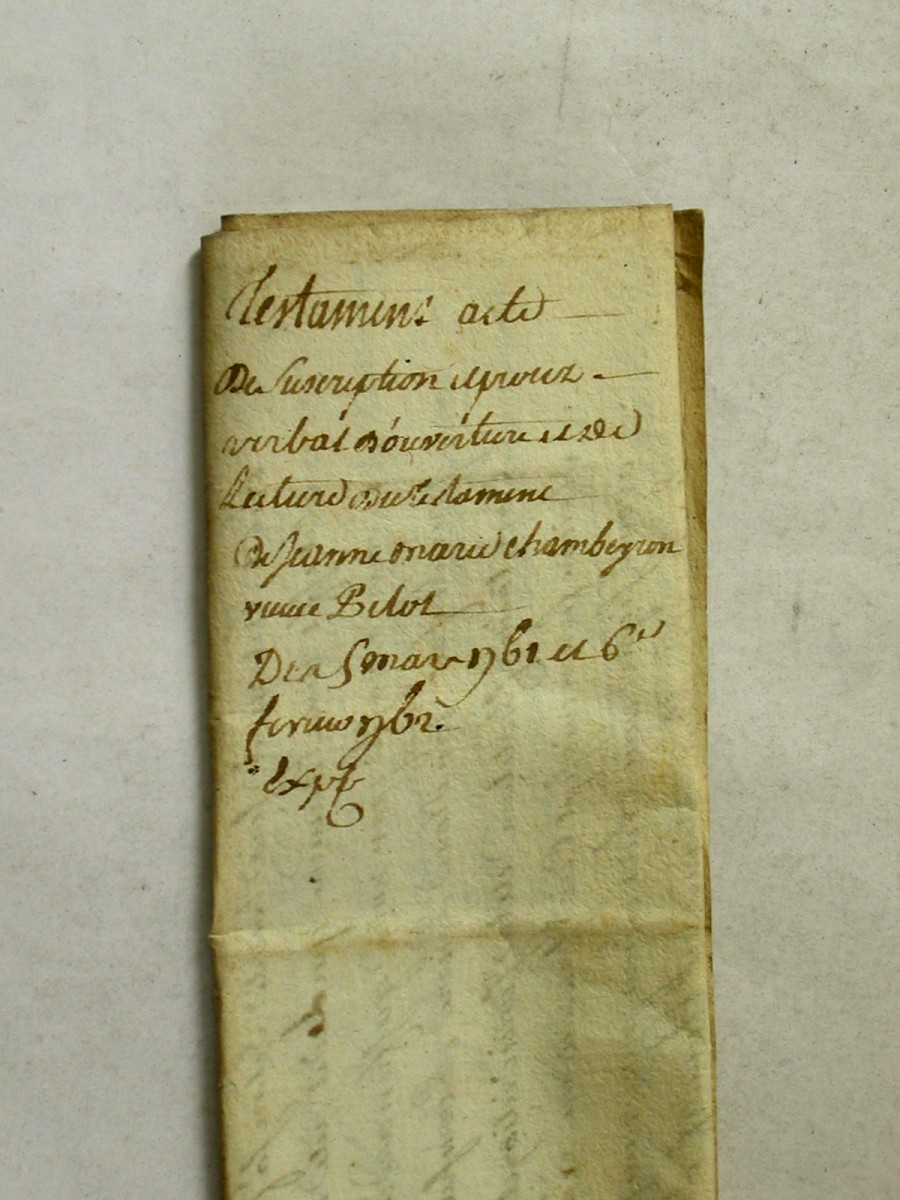 Testament acte
De Suscription et procez
verbal d'ouverture et de
Lecture du testament
de Jeanne marie Chambeyron
veuve Pilot
Des 5 mars 1761 et 6
fevrier 1762.
Exp